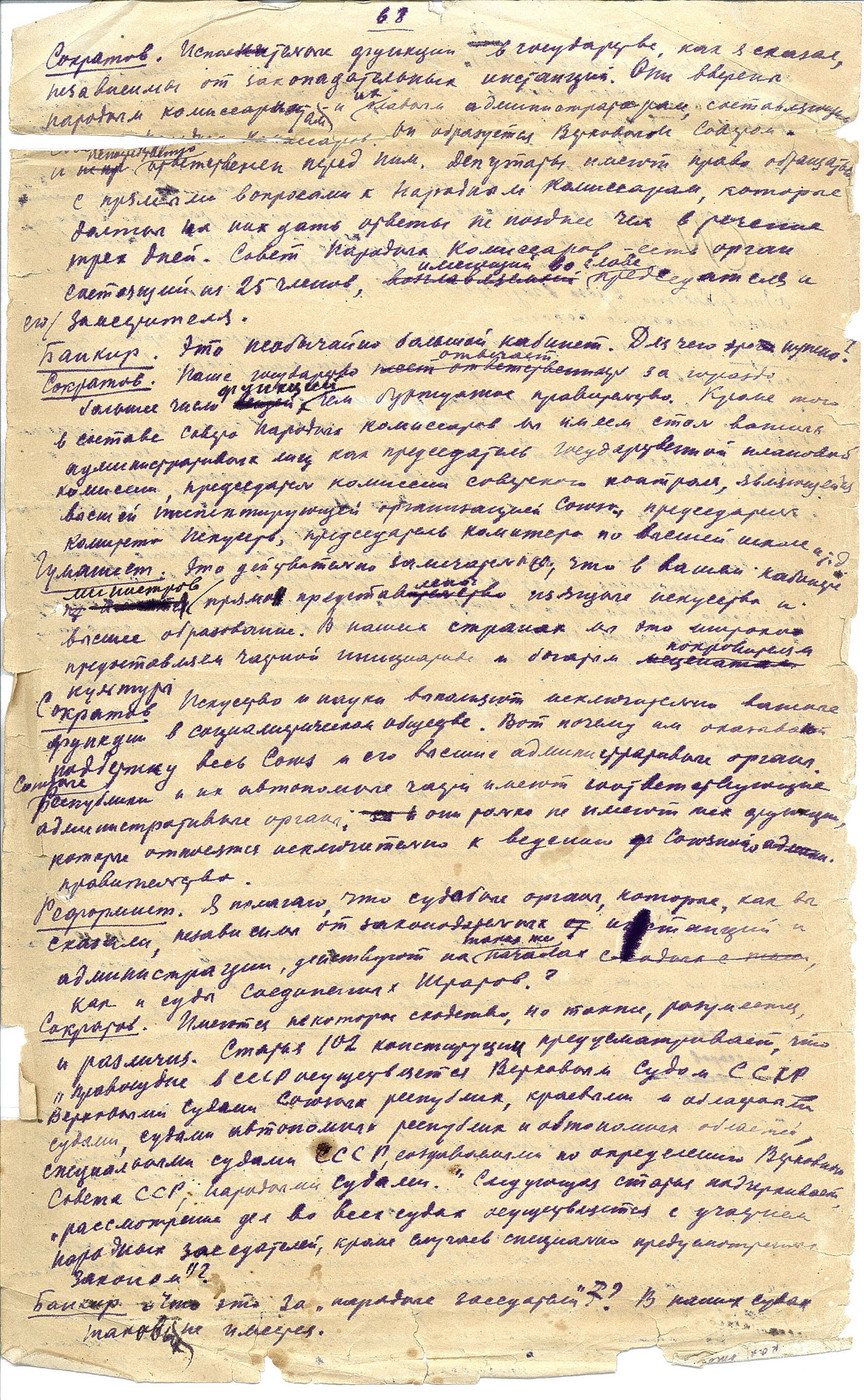 68
Сократов. Исполнительные функции в государстве, как я сказал,
независимы от законодательных инстанций. Они вверены
народным комиссарам и их администраторам, составляющим
Комиссаров. Он образуется Верховным Советом
и непосредственно ответственен перед ним. Депутаты имеют право обращаться
с прямыми вопросами к Народным Комиссарам, которые
должны на них дать ответы не позднее чем в течение
трех дней. Совет Народных Комиссаров есть орган
состоящий из 25 членов, имеющий во главе председателя и
его заместителя.
Банкир. Это необычайно большой кабинет. Для чего нужно?
Сократов. Наше государство отвечает за гораздо
большее число функций чем буржуазное правительство. Кроме того
в составе Совета Народных комиссаров мы имеем столь важных
административных лиц как председатель государственной плановой
комиссии, председателя комиссии советского контроля, являющейся
высшей инспектирующей организацией Союза, председатель
комитета искусств, председатель комитета по высшей школе и т д
Гуманист. Это действительно замечательно, что в вашем кабинете
министров прямо представлены изящные искусства и
высшее образование. В наших странах мы это широко
предоставляем частной инициативе и богатым покровителям
культуры
Сократов Искусство и науки выполняют исключительно важные
функции в социалистическом обществе. Вот почему им оказывает
поддержку весь Союз и его высшие административные органы.
Союзные
Республики и их автономные части имеют соответствующие
административные органы, они только не имеют тех функций,
которые относятся исключительно к ведению Союзного
правительства.
Реформист. Я полагаю, что судебные органы, которые, как вы
сказали, независимы от законодательных инстанций и
администрации, действуют на таких же началах,
как и суды Соединенных Штатов?
Сократов. Имеются некоторые сходства, но также, разумеется,
и различия. Статья 102 конституции предусматривает, что
"правосудие в СССР осуществляется Верховным Судом СССР
Верховными Судами Союзных республик, краевыми и областными
судами, судами автономных республик и автономных областей,
специальными судами СССР, создаваемыми по определению Верховного
Совета СССР, народными судами." Следующая статья подчеркивает,
"рассмотрение дел во всех судах осуществляется с участием
народных заседателей, кроме случаев специально предусмотренных
законом"?
Банкир Что это за "народные заседатели"? В наших судах
таковых не имеется.